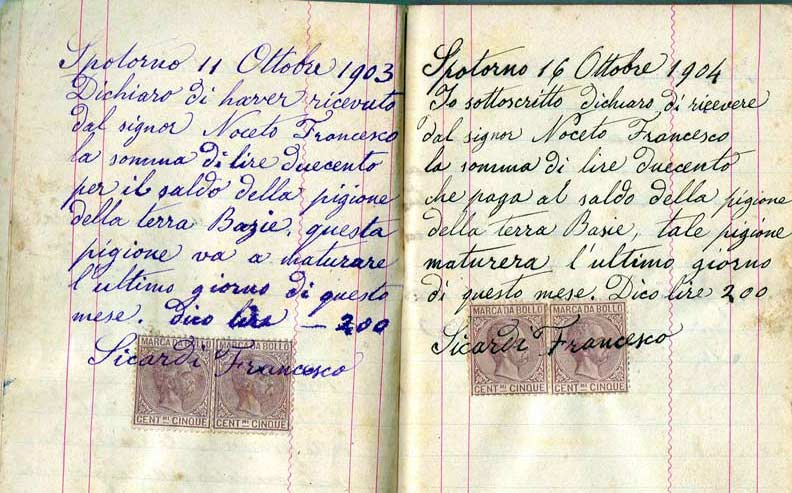 Spotorno 11 Ottobre 1903
Dichiaro di haver ricevuto
dal signor Noceto Francesco
la somma di lire duecento
per il saldo della pigione
della terra Bazie, questa
pigione va a maturare
l'ultimo giorno di questo
mese. Dico lire — 200
Sicardi Francesco
MARCA DA BOLLO
MARCA DA BOLLO
CENT.MI CINQUE
CENT.MI CINQUE
Spotorno 16 Ottobre 1904
Io sottoscritto dichiaro di ricevere
dal signor Noceto Francesco
la somma di lire duecento
che paga al saldo della pigione
della terra Basie, tale pigione
maturera l'ultimo giorno
di questo mese. Dico lire 200
Sicardi Francesco
MARCA DA BOLLO
MARCA DA BOLLO
CENT.MI CINQUE
CENT.MI CINQUE